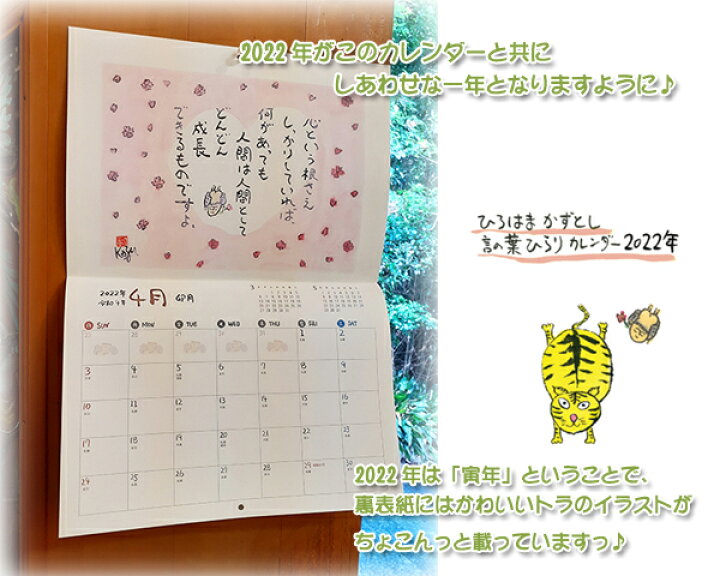 2022年がこのカレンダーと共に
しあわせな一年となりますように♪
心という根さえ
しっかりしていれば、
何があっても
人間は人間として
どんどん
成長
できるものですよ。
ひろはま かずとし
言の葉ひらり カレンダー2022年
2022年
4月 卯月
3 5
SUN MON TUE WED THU FRI SAT
27 28 29 30 31 1 2
3 4 5 6 7 8 9
10 11 12 13 14 15 16
17 18 19 20 21 22 23
24 25 26 27 28 29 30
2022年は「寅年」ということで、
裏表紙にはかわいいトラのイラストが
ちょこんっと載っていますっ♪